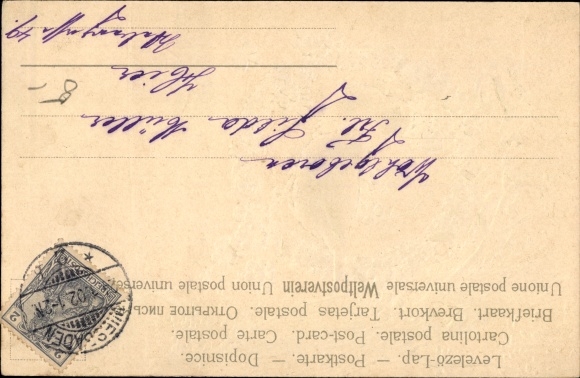 Levelező-Lap. — Postkarte. — Dopisnice.
Cartolina postale. Post-card. Carte postale.
Briefkaart. Brevkort. Tarjetas postale. Открытое письмо
Unione postale universale Weltpostverein Union postale universelle
WIESBADEN
02. 1-2N
2
2
Wohlgeboren
Frl. Gilda Müller
Hier
49
8-